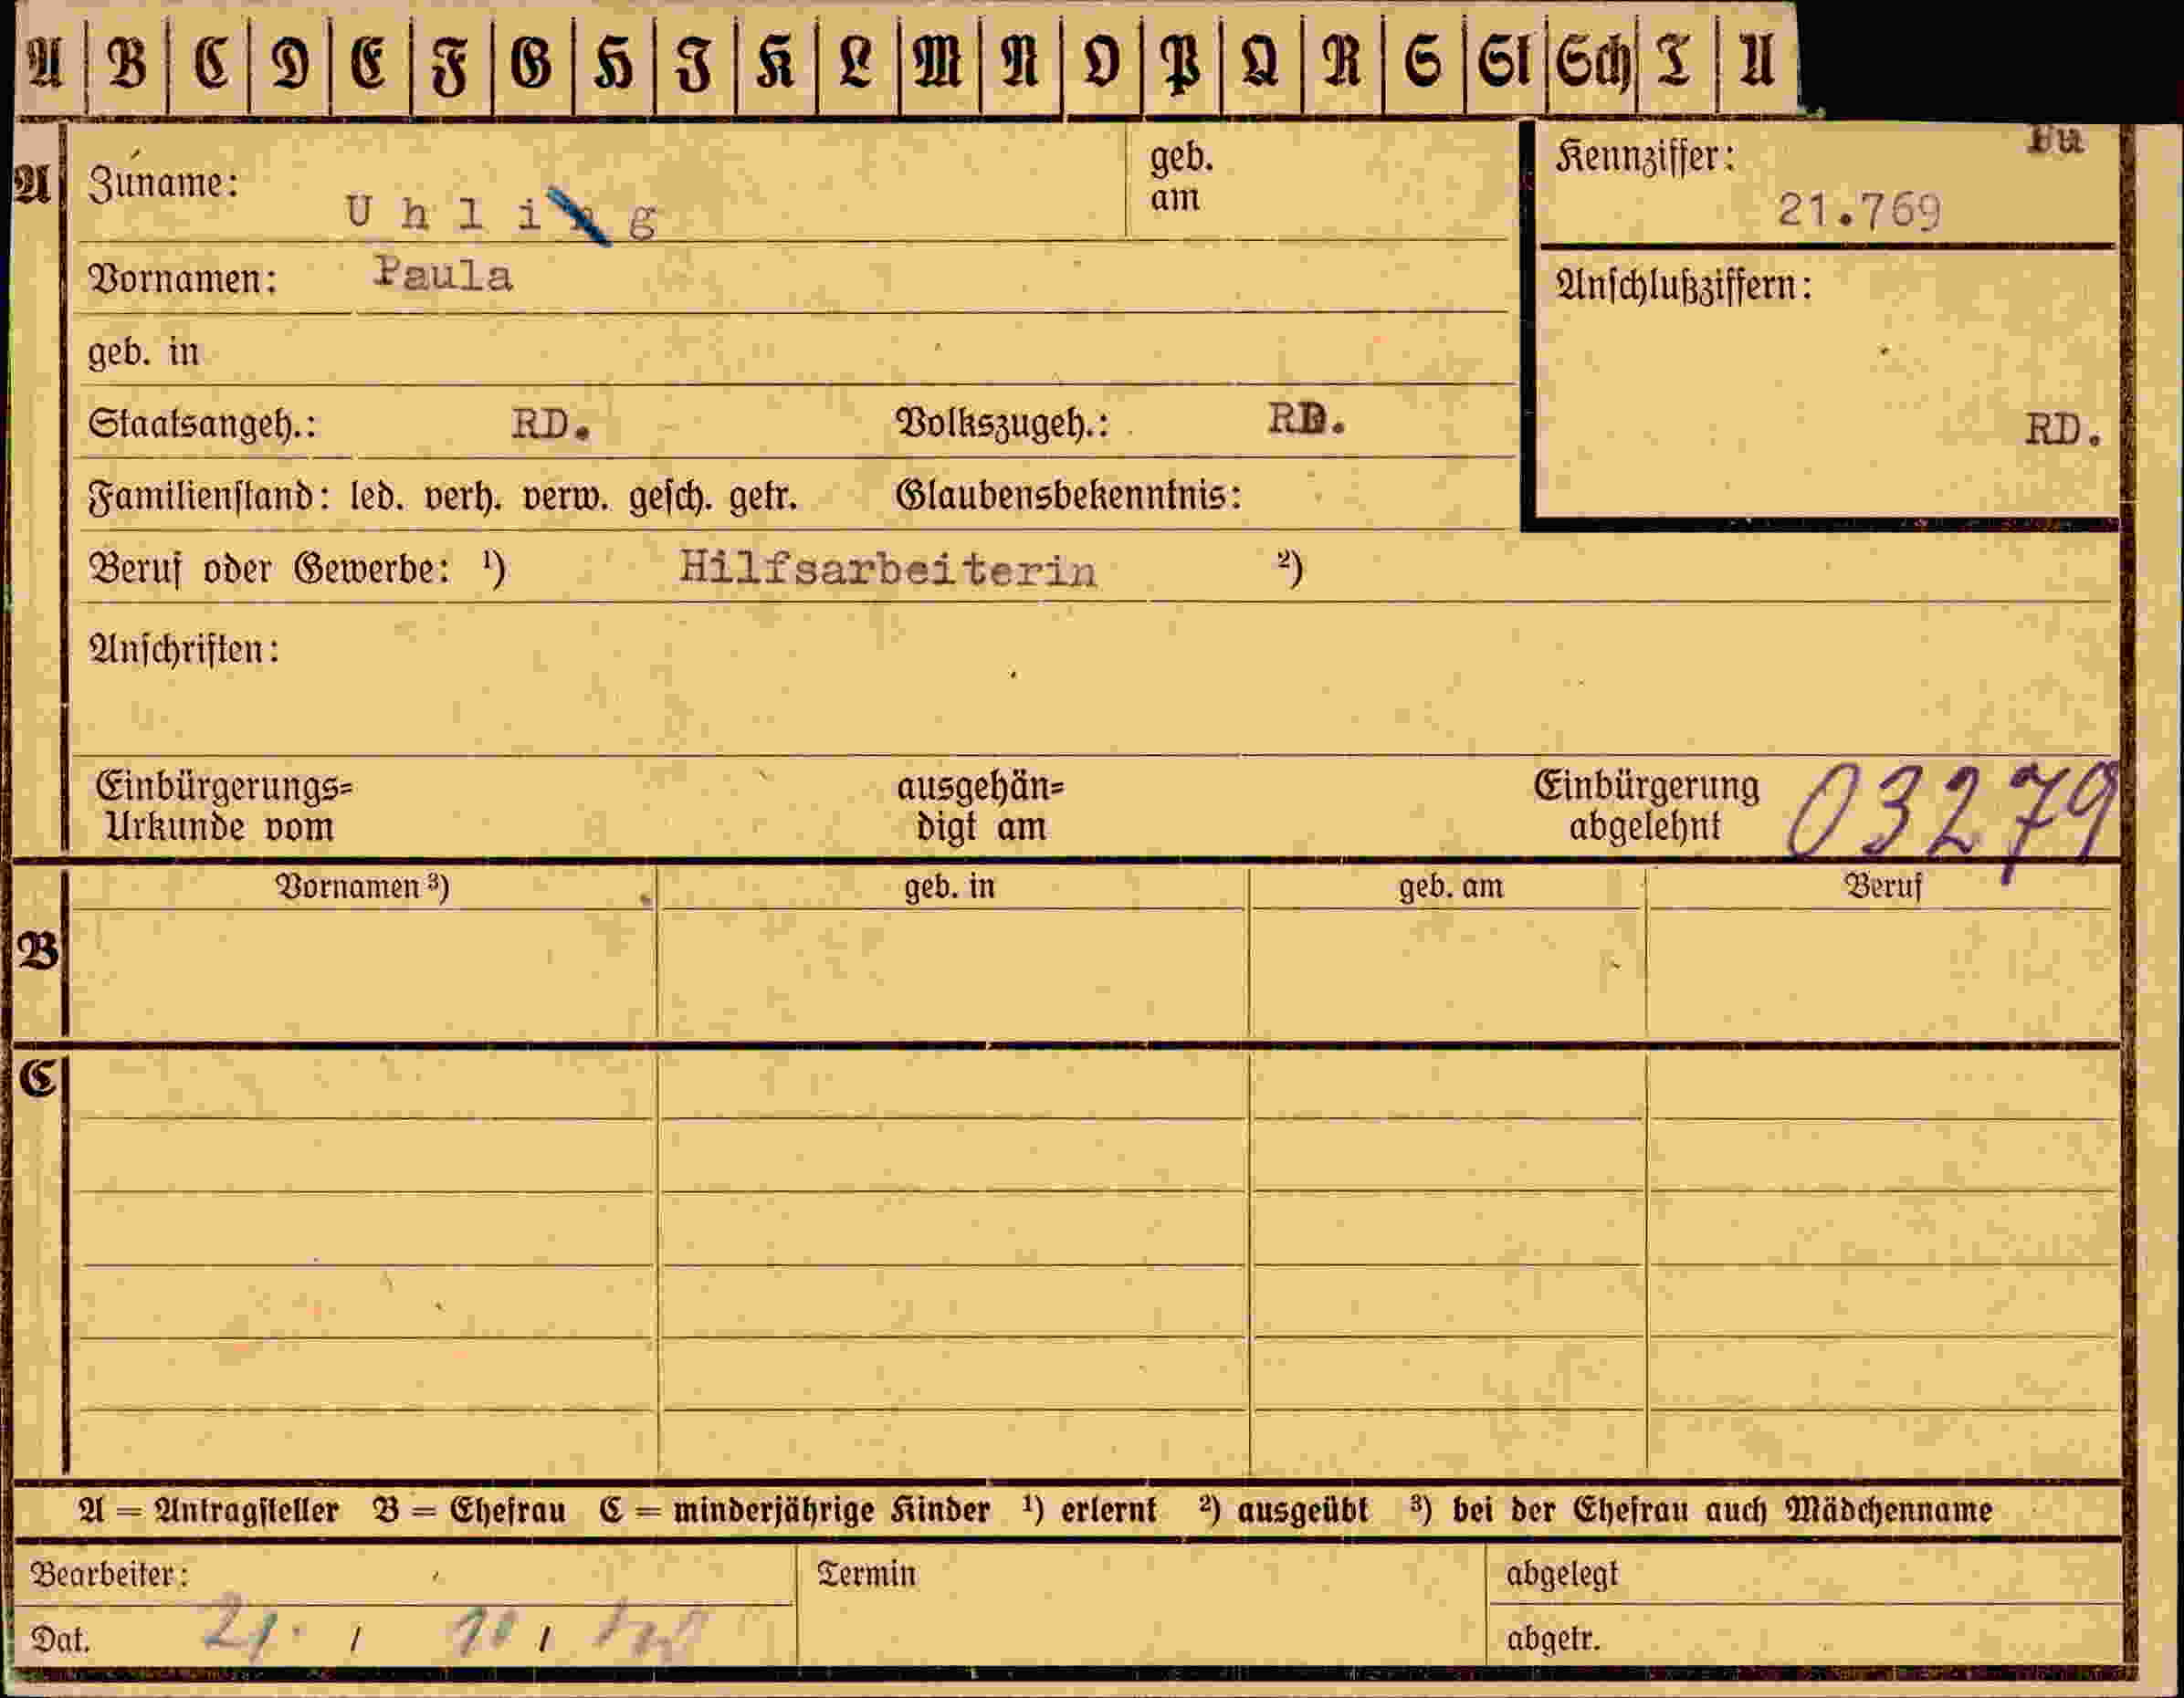 A B C D E F G H I K L M N O P Q R S St Sch T U
A Zuname: Uhlig geb. am Kennziffer: Bu
21.769
Vornamen: Paula
Anschlußziffern:
geb. in
Staatsangeh.: RD. Volkszugeh.: RD. RD.
Familienstand: led. verh. verw. gesch. getr. Glaubensbekenntnis:
Beruf oder Gewerbe: ¹) Hilfsarbeiterin ²)
Anschriften:
Einbürgerungs= ausgehän= Einbürgerung 03279
Urkunde vom digt am abgelehnt
Vornamen ³) geb. in geb. am Beruf
B
C
A = Antragsteller B = Ehefrau C = minderjährige Kinder ¹) erlernt ²) ausgeübt ³) bei der Ehefrau auch Mädchenname
Bearbeiter: Termin abgelegt
Dat. 21. / 10 / abgetr.